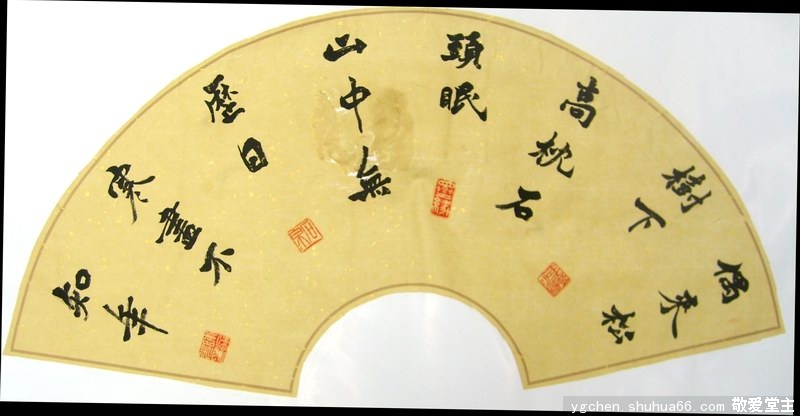 偶来松
樹下
高枕石
頭眠
山中無
曆日
寒盡不
知年
ygchen.shuhua66.com 敬爱堂主